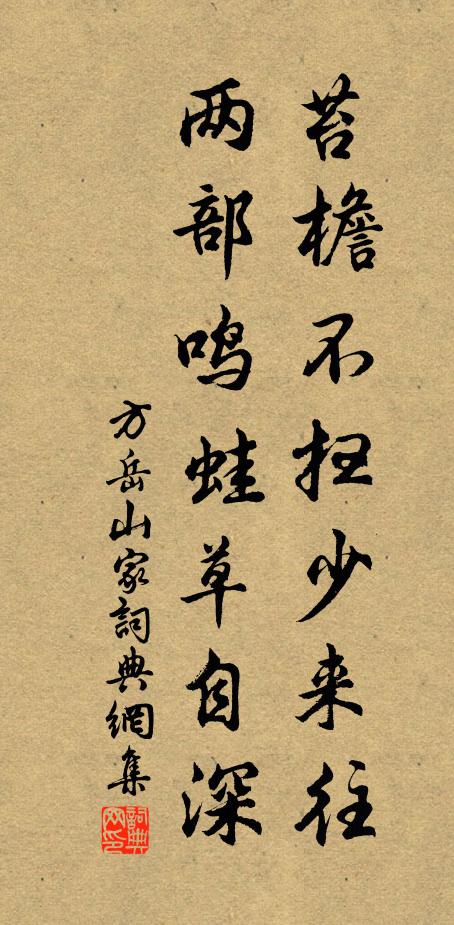 苔檐不扫少来往
两部鸣蛙草自深
方岳山家詞典網集
詞典網印